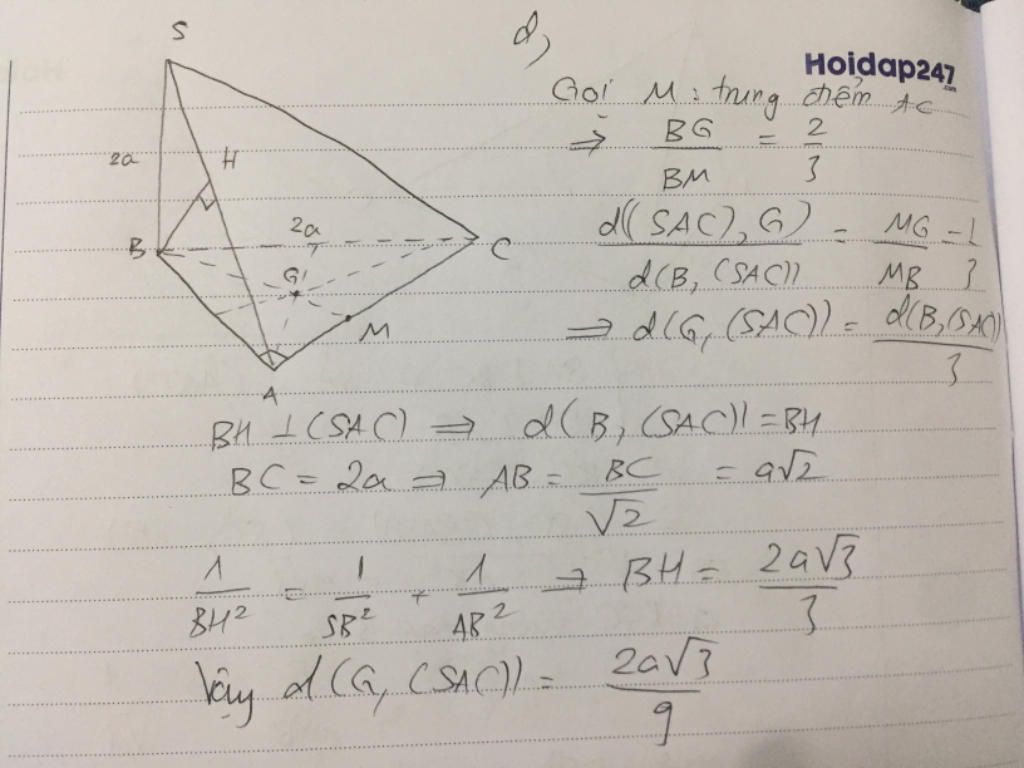 d,
Hoidap247
.com
Gọi M: trung điểm AC
⇒ BG/BM = 2/3
d((SAC), G)/d(B, (SAC)) = MG/MB = 1/3
⇒ d(G, (SAC)) = d(B, (SAC))/3
S
2a
H
B
2a
C
G
M
A
BH ⊥ (SAC) ⇒ d(B, (SAC)) = BH
BC = 2a ⇒ AB = BC/√2 = a√2
1/BH² = 1/SB² + 1/AB² ⇒ BH = 2a√3/3
Vậy d(G, (SAC)) = 2a√3/9